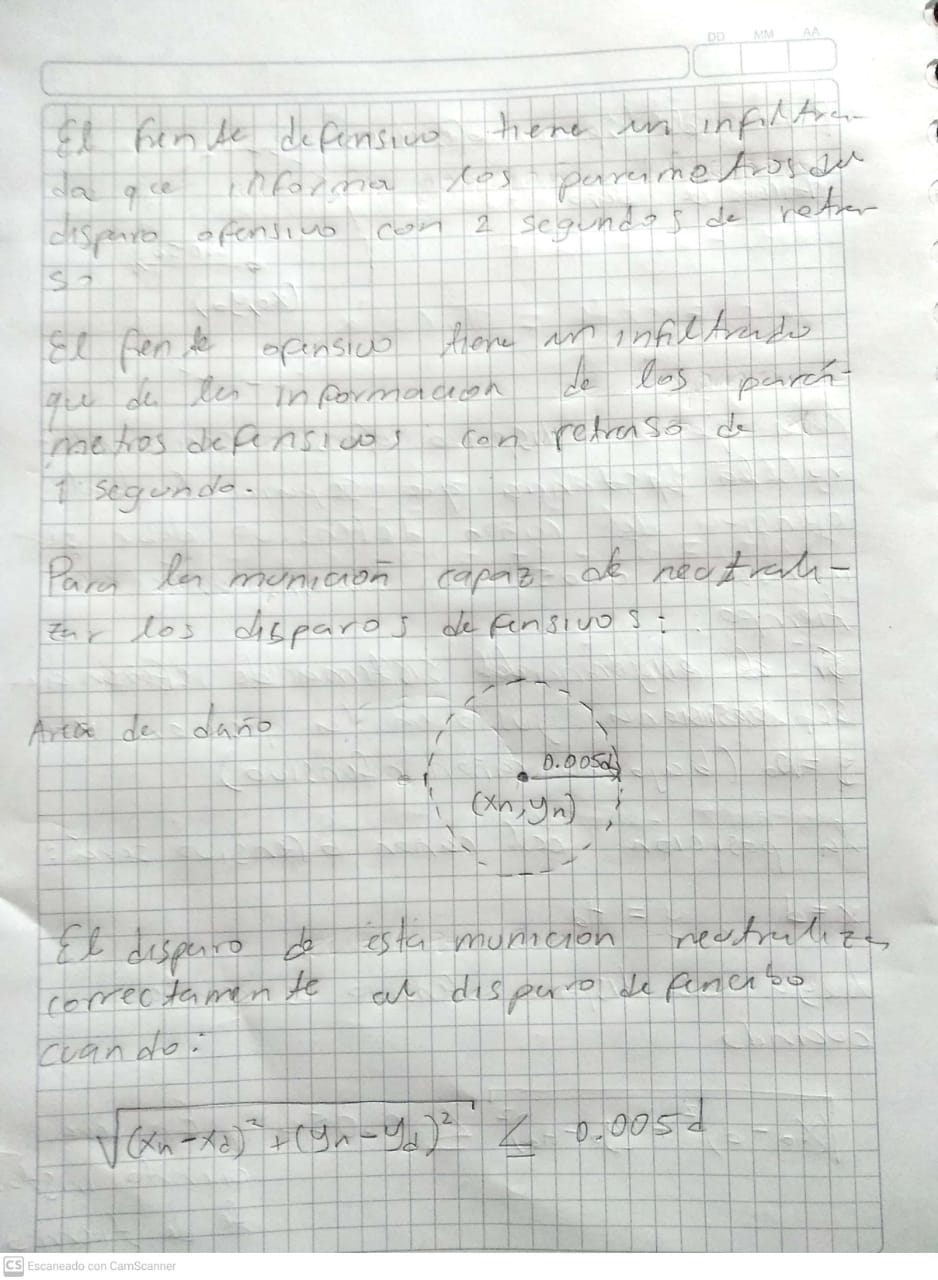 DD MM AA
El frente defensivo tiene un infiltra-
do que informa los parametros del
disparo ofensivo con 2 segundos de retra-
so
El frente ofensivo tiene un infiltrado
que da la informacion de los pará-
metros defensivos con retraso de
1 segundo.
Para la munición capaz de neutrali-
zar los disparos defensivos:
Area de daño
0.005d
(xn, yn)
El disparo de esta munición neutraliza
correctamente al disparo defensibo
cuando:
√(xn-xd)² + (yn-yd)² ≤ 0.005d
CS Escaneado con CamScanner